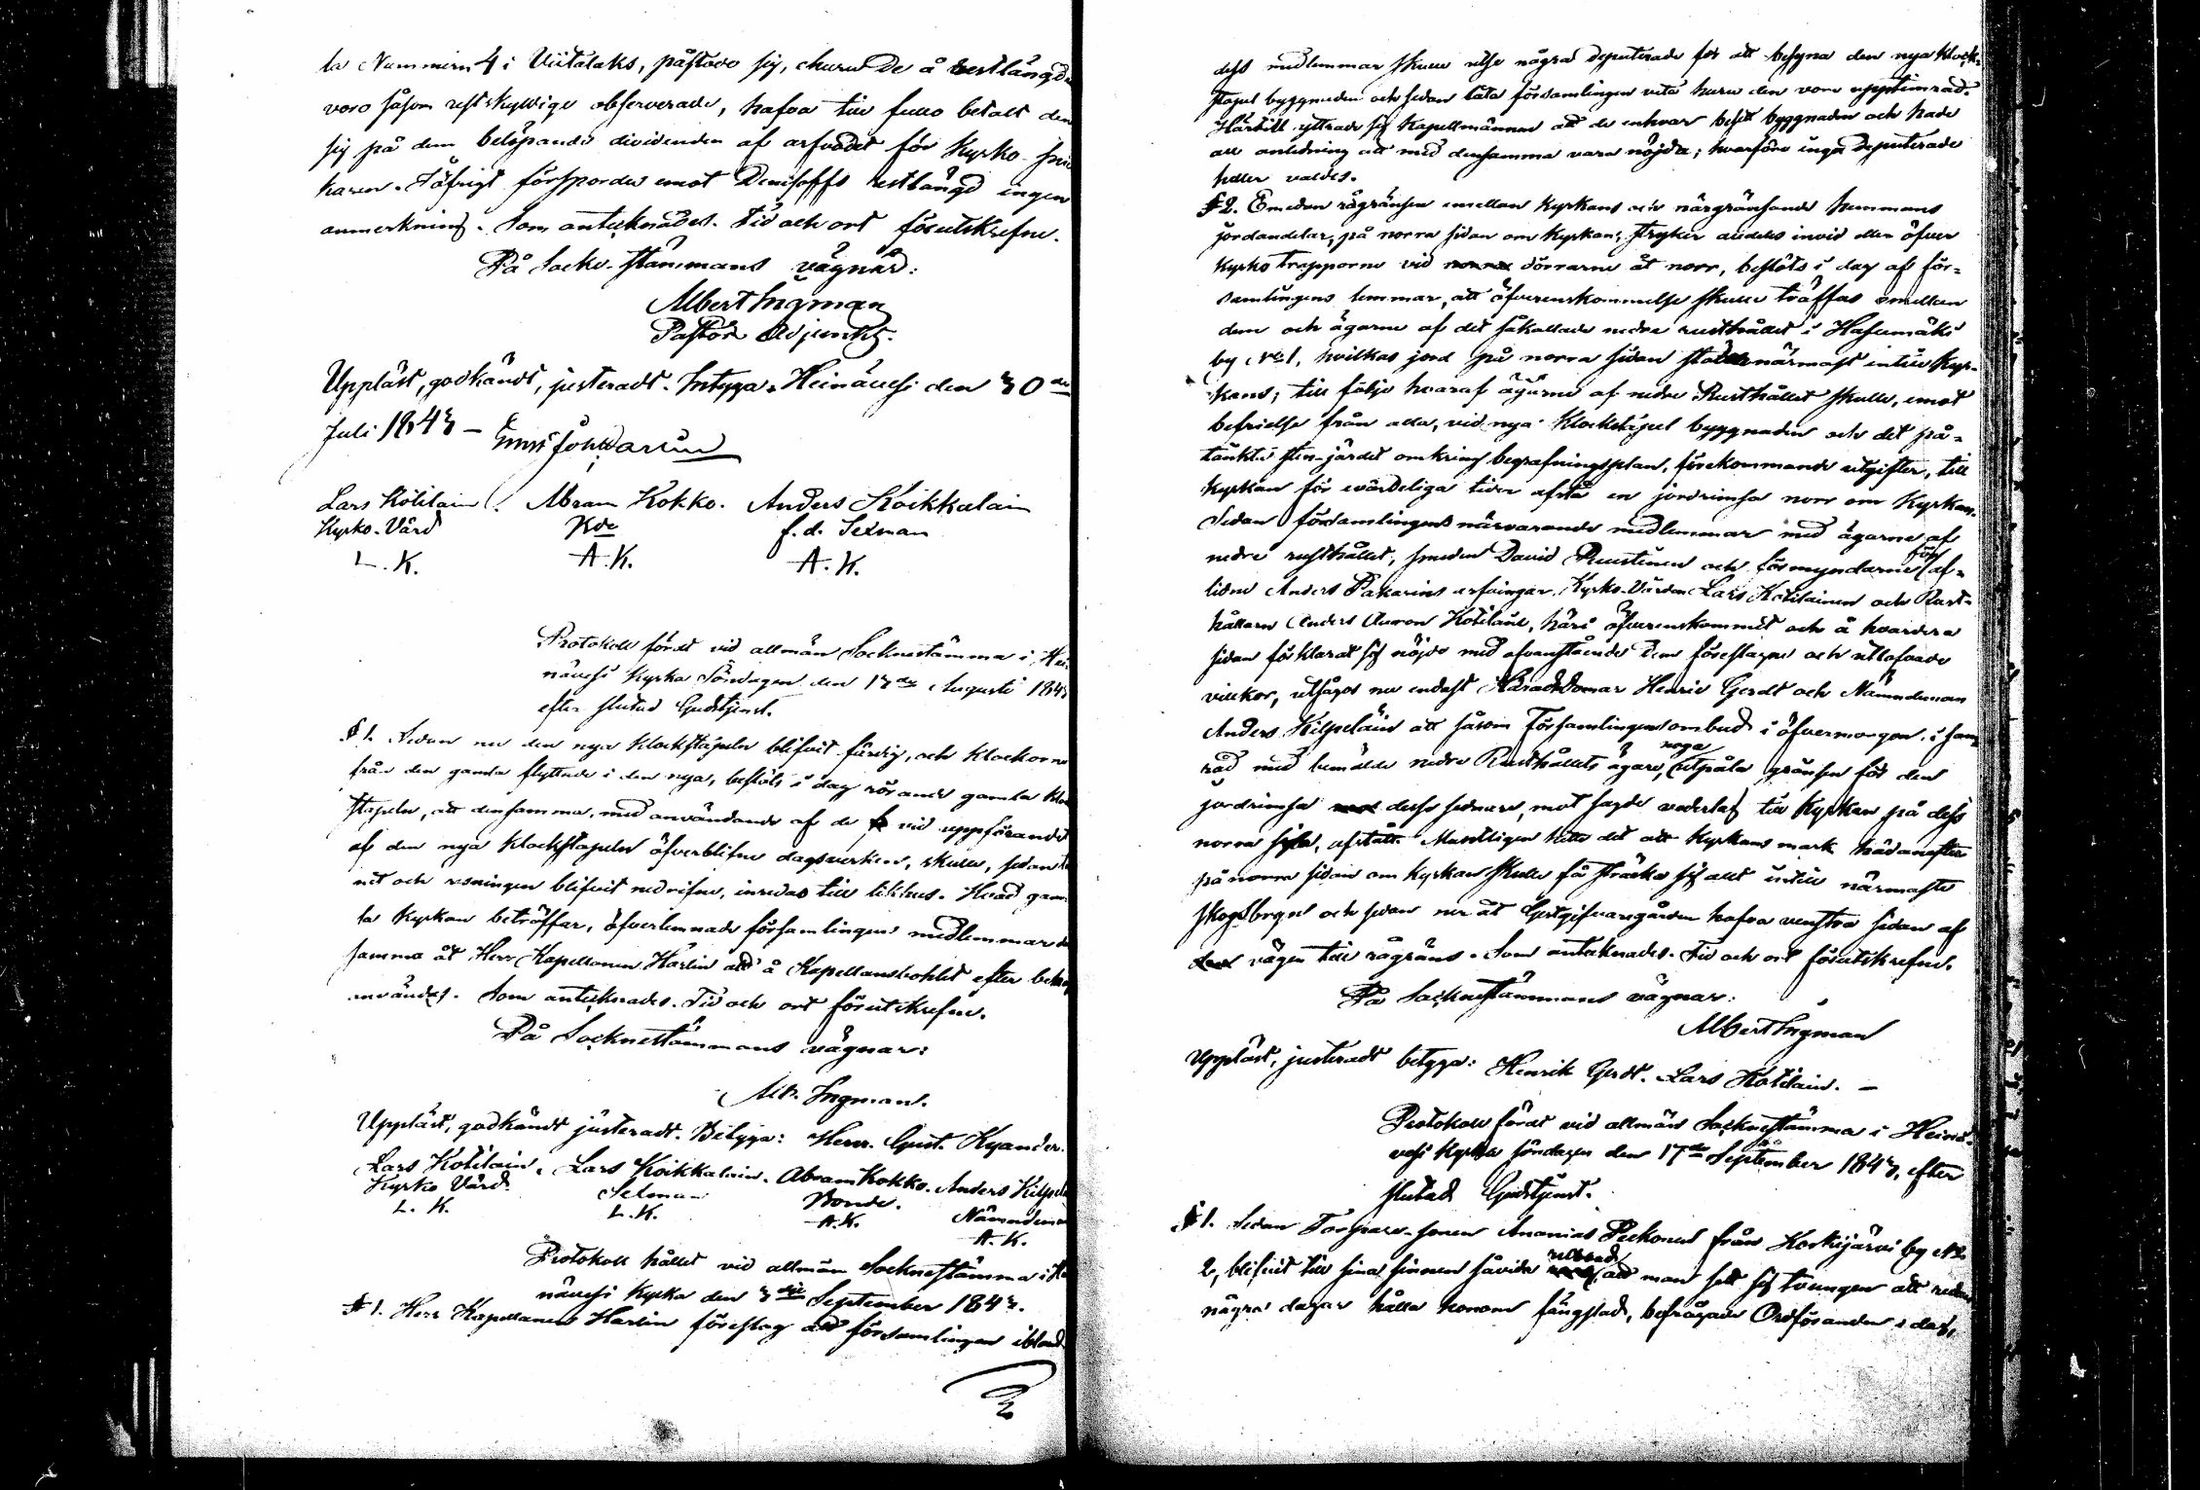 la Nummern 4 i Viitalaks, påstodo sig, churu De å restlängde
voro såsom restskyldige observerade, hafva till fullo betalt den
sig på dem belöpande dividenden af arfvodet för Kyrko-
karen. I öfrigt förspordes emot Denisoffs restlängd ingen
anmerkning. Som antecknades. Tid och ort förutskrefne.
På Sockne-stämmans vägnar:
Albert Ingman
Pastors Adjunkt.
Uppläst, godkändt, justeradt. Intyga. Heinävesi den 30de
Juli 1843 –
Lars Kotilain. Abram Kokko. Anders Koikkalain
Kyrko-Vård f.d. Sexman
L. K. A. K. A. K.
Protokoll fördt vid allmän Socknestämma i Hei-
nävesi Kyrka Söndagen den 13de Augusti 1843
efter slutad Gudstjenst.
§ 1. Sedan nu den nya Klockstapeln blifvit färdig, och klockorne
från den gamla flyttade i den nya, beslöts i dag rörande gamla Klock
stapeln, att densamma, med användande af de vid uppförandet
af den nya Klockstapeln öfverblifne dagsverken, skulle, sedan
nit och resningen blifvit nedrifne, inredas till likhus. Hvad gam
la Kyrkan beträffar, öfverlemnade församlingens medlemmar den
samma åt Herr Kapellanen Harlin att å Kapellansbohlet efter behag
användas. Som antecknades. Tid och ort förutskrefne.
På Socknestämmans vägnar:
Alb. Ingman.
Uppläst, godkändt justeradt. Betyga: Herr. Gust. Kyander.
Lars Kotilain. Lars Koikkalain. Abram Kokko. Anders Kilpeläin
Kyrko Vård. Sexman Bonde. Nämndeman
L. K. L. K. A. K. A. K.
Protokoll hållet vid allmän Socknestämma i Hei
nävesi Kyrka den 3dje September 1843.
§ 1. Herr Kapellanen Harlin föreslog att församlingen ibland
dess medlemmar skulle utse några Deputerade för att besyna den nya Klock-
stapel byggnaden och sedan låta församlingen veta huru den vore upptimrad.
Härtill yttrade sig Kapellmännen att de enhvar besett byggnaden och hade
all anledning att med densamma vara nöjda; hvarföre inga Deputerade
heller valdes.
§ 2. Emedan rågränsen emellan Kyrkans och närgränsande hemmans
jordandelar, på norra sidan om Kyrkan, stryker alldeles invid eller öfver
Kyrko trapporne vid dörrarne åt norr, beslöts i dag af för-
samlingens lemmar, att öfverenskommelse skulle träffas emellan
dem och ägarne af det såkallade nedre rusthållet i Hasumäki
by No 1, hvilkas jord på norra sidan stöter närmast intill Kyr-
kans; till följe hvaraf ägarne af nedre Rusthållet skulle, emot
befrielse från alla, vid nya Klockstapel byggnaden och det på-
tänkte sten-gärdet omkring begrafningsplan, förekommande utgifter, till
Kyrkan för evärdeliga tider afstå en jordrimsa norr om Kyrkan.
Sedan församlingens närvarande medlemmar med ägarne af
nedre rusthållet, smeden David Ruustinen och förmyndarne för af-
lidne Anders Pakarins arfvingar, Kyrko-Vården Lars Kotilainen och Rust-
hållaren Anders Aaron Kotilain, häri öfverenskommit och å hvardera
sidan förklarat sig nöjde med ofvanstående dem föreslagne och utlofvade
villkor, utsågos nu endast Häradsdomar Henric Gerdt och Nämndeman
Anders Kilpeläin att såsom Församlingens ombud i öfvermorgon, i sam
råd med bemälde nedre Rusthållets ägare, noga utpåla gränsen för den
jordrimsa desse sednare, mot sagde vederlag till Kyrkan på dess
norra sida, afstått. Muntligen hette det att Kyrkans mark hädanefter
på norra sidan om Kyrkan skulle få sträcka sig allt intill närmaste
skogsbrynet och sedan ner åt Gästgifvaregården hafva venstra sidan af
vägen till rågräns. Som antecknades. Tid och ort förutskrefne.
På Socknestämmans vägnar:
Albert Ingman
Uppläst, justeradt betyga: Henrik Gerdt. Lars Kotilain. –
Protokoll fördt vid allmän Socknestämma i Heinä-
vesi Kyrka söndagen den 17de September 1843, efter
slutad Gudstjenst.
§ 1. Sedan Torpare-sonen Ananias Pekonen från Korkijärvi by No
2, blifvit till sina sinnen såvida rubbad att man sett sig tvungen att redan
några dagar hålla honom fängslad, befrågade Ordföranden i dag,